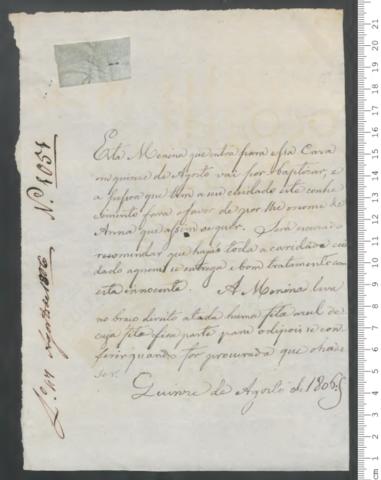 Esta Menina que entra para essa Caza
em quinze de Agosto vai por baptizar, e
a pessoa que tem a seu cuidado este conhe
cimento fara o favor de por lhe o nome de
Anna que assim se quer. Será escuzado
recomendar que haja toda a caridade e cui
dado a quem se entrega e bom tratamento com
esta innocente. A Menina leva
no braço direito atada huma fita azul de
cuja fita fica parte para o depois se con
ferir quando for procurada que o ha de
ser.
Quinze de Agosto de 1806
Nº. 1051
Agosto 1806